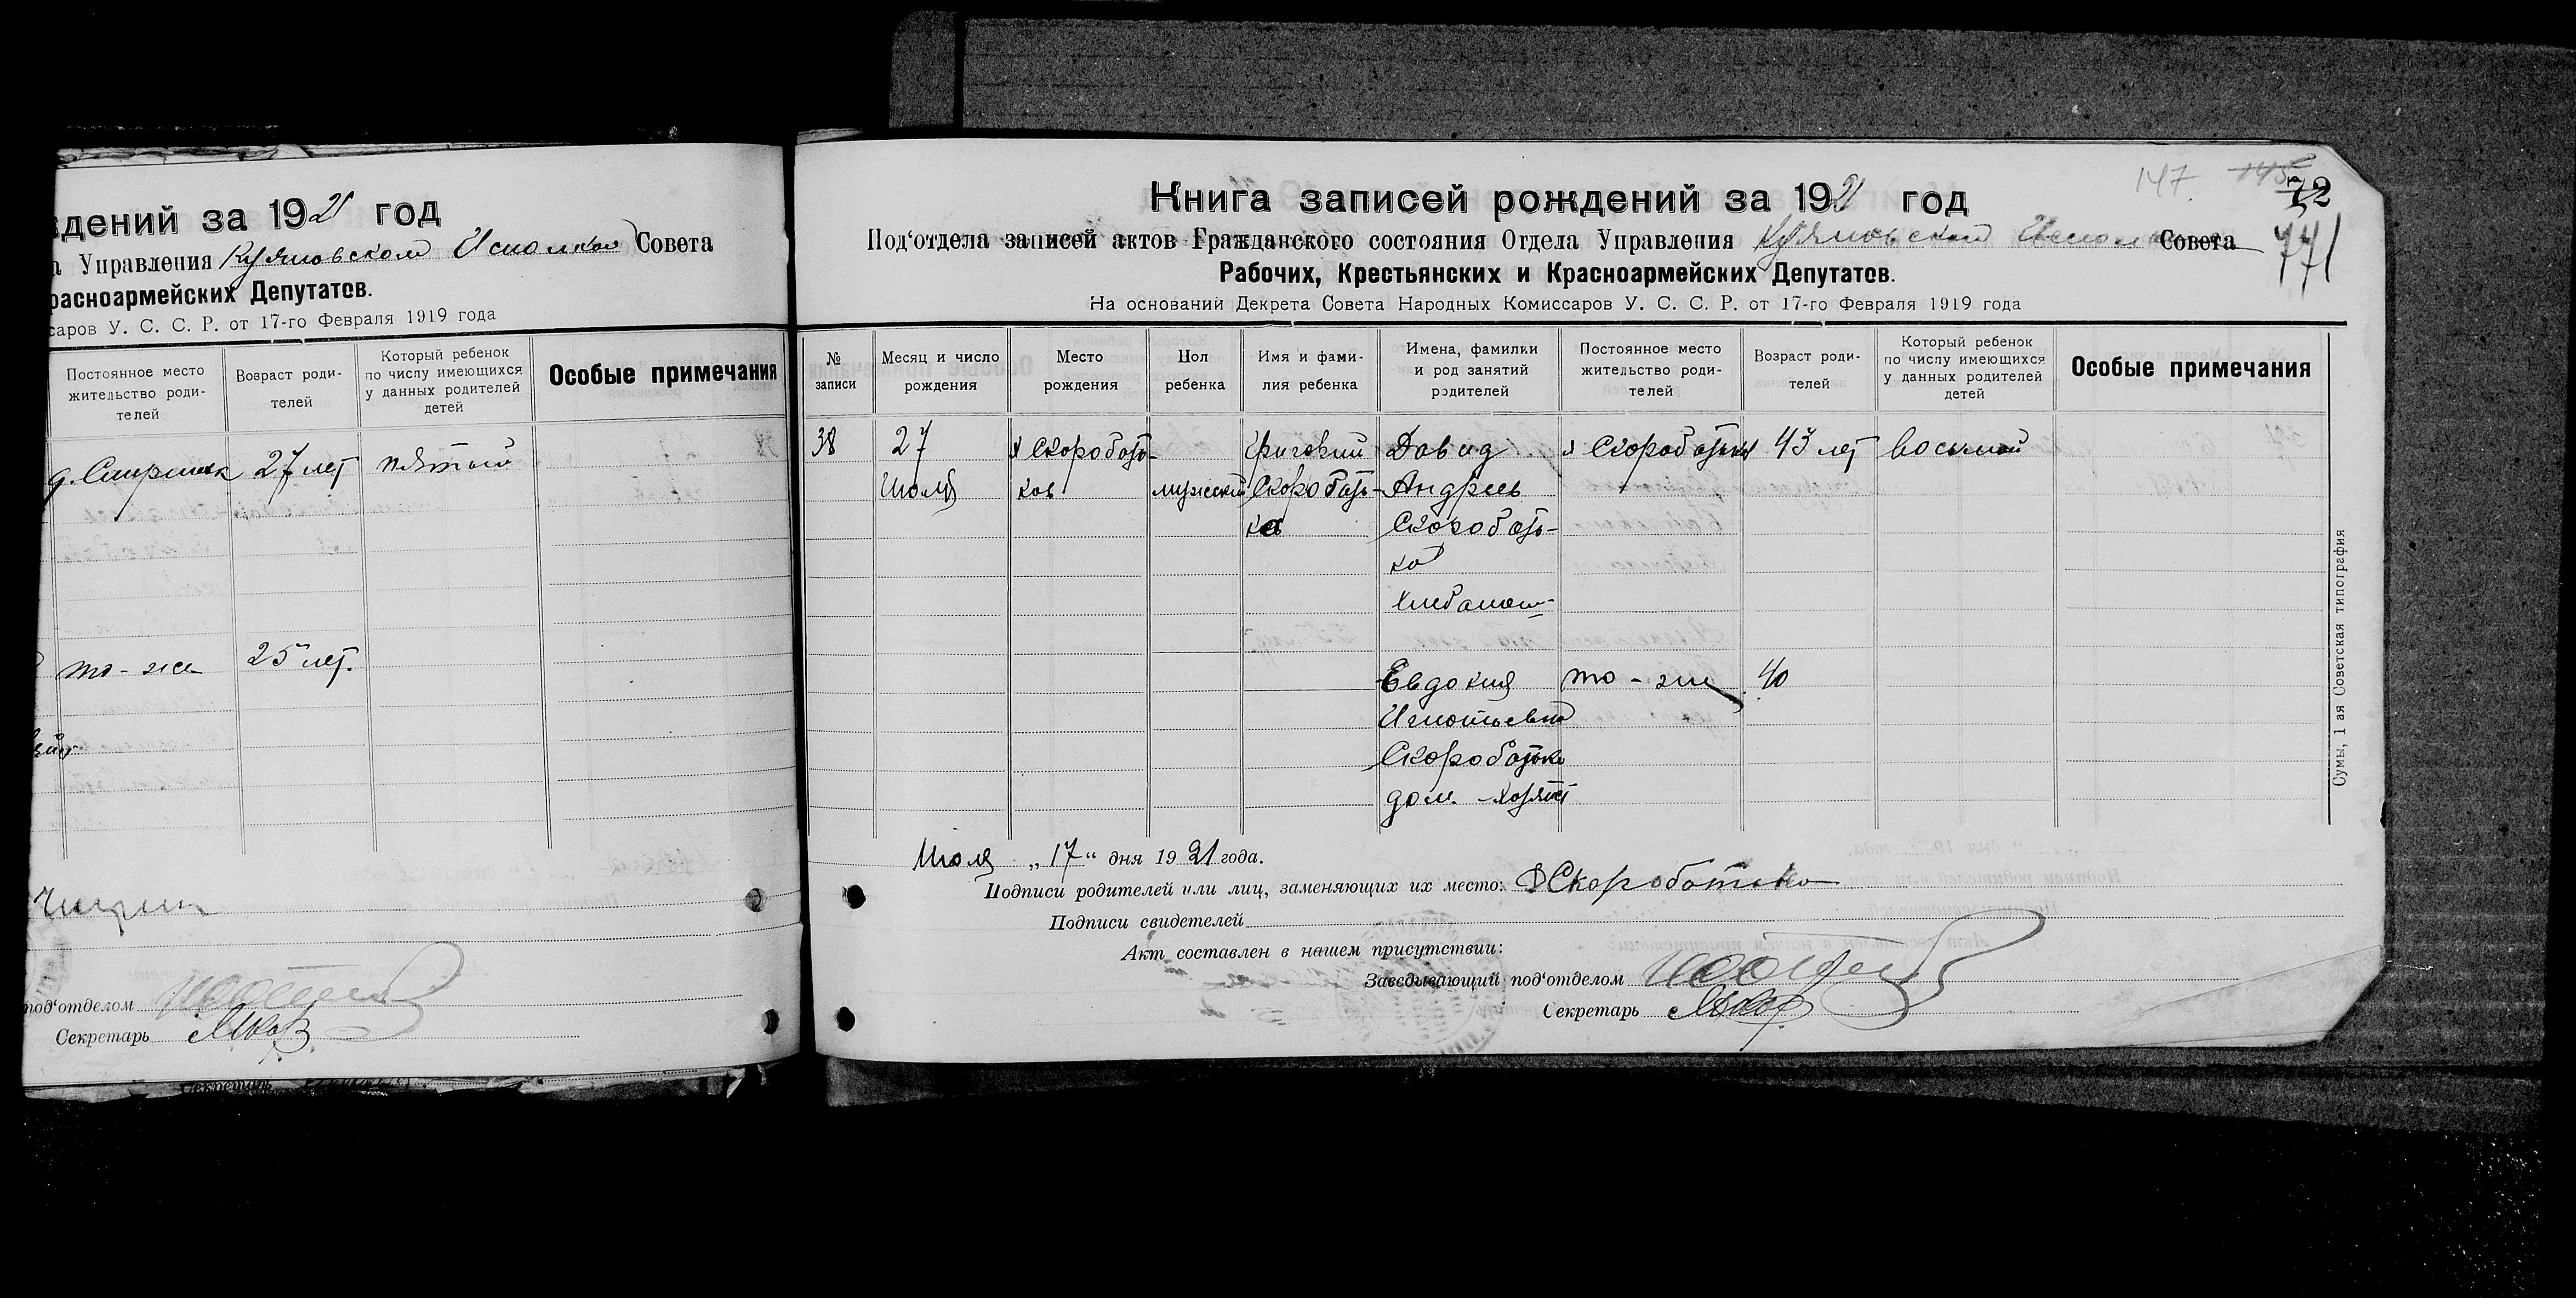 ждений за 1921 год
а Управления Куяновском Исполком Совета
расноармейских Депутатов.
саров У. С. С. Р. от 17-го Февраля 1919 года
Постоянное место жительство роди-телей
Возраст роди-телей
Который ребенок по числу имеющихся у данных родителей детей
Особые примечания
27 лет пятый
то-же 25 лет.
под‘отделом
Секретарь
147 145 72
771
Книга записей рождений за 1921 год
Под‘отдела записей актов Гражданского состояния Отдела Управления Куяновском Исполком Совета
Рабочих, Крестьянских и Красноармейских Депутатов.
На основании Декрета Совета Народных Комиссаров У. С. С. Р. от 17-го Февраля 1919 года
№ записи
Месяц и число рождения
Место рождения
Пол ребенка
Имя и фами-лия ребенка
Имена, фамилии и род занятий родителей
Постоянное место жительство роди-телей
Возраст роди-телей
Который ребенок по числу имеющихся у данных родителей детей
Особые примечания
38 27 х Скоробать- Григорий Давид х Скоробатьков 43 лет восьмой
Июля ков мужеский Скоробать- Андреев
ко Скоробать-
ко
хлебопаш-
Евдокия то-же 40
Игнатьевна
Скоробатько
дом. хозяйст
Июля „17“ дня 1921 года.
Подписи родителей или лиц, заменяющих их место: Д Скоробатько
Подписи свидетелей
Акт составлен в нашем присутствии:
Заведывающий под‘отделом
Секретарь
Сумы, 1 ая Советская типография